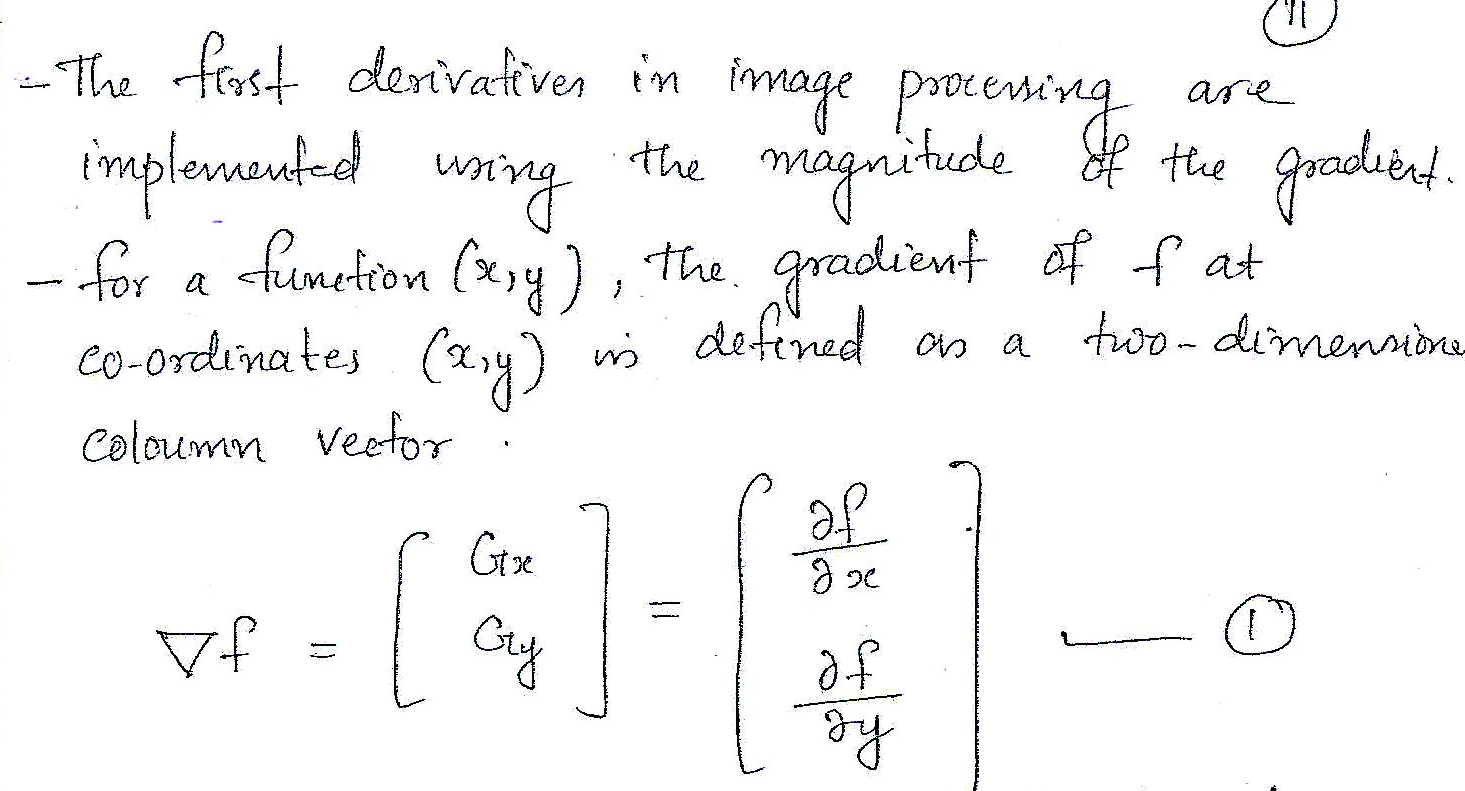 11
- The first derivatives in image processing are
implemented using the magnitude of the gradient.
- for a function (x,y), the gradient of f at
co-ordinates (x,y) is defined as a two-dimensione
coloumn vector.
∇f = [ Gx Gy ] = [ ∂f/∂x ∂f/∂y ] — ①